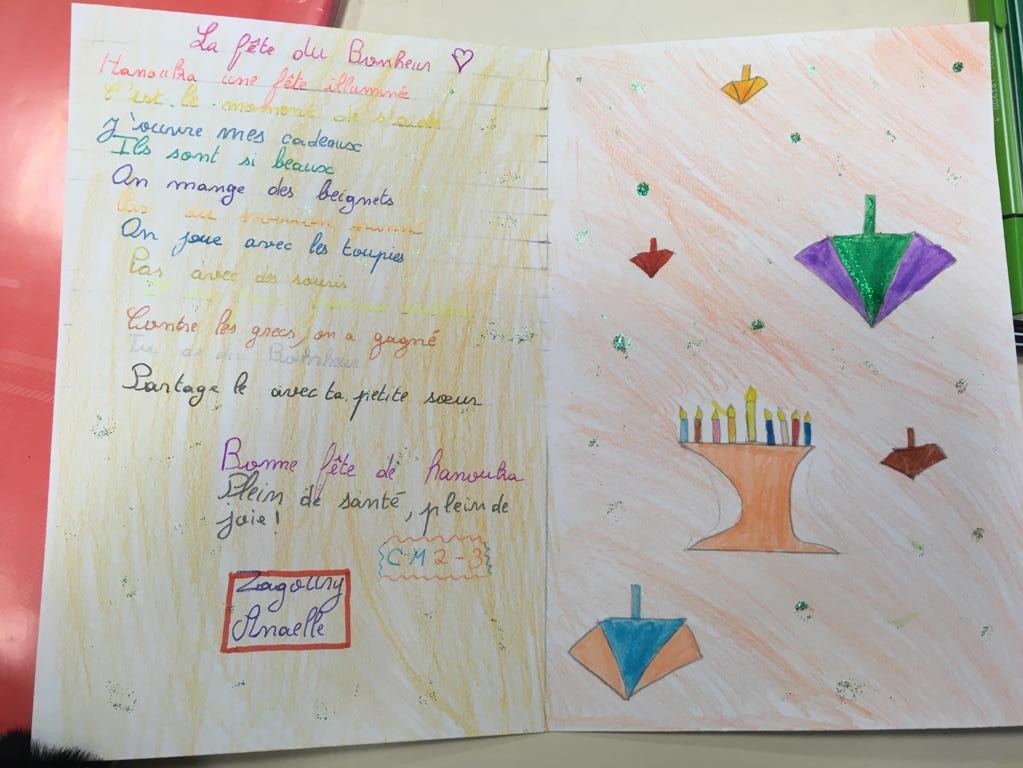 La fête du Bonheur
Hanouka une fête illuminée
C'est le moment de s'aider
J'ouvre mes cadeaux
Ils sont si beaux
On mange des beignets
Pas du
On joue avec les toupies
Pas avec des souris
Contre les grecs, on a gagné
Tu as du Bonheur
Partage le avec ta petite sœur
Bonne fête de hanouka
Plein de santé, plein de
joie!
CM2-3
Zagoury
Anaelle